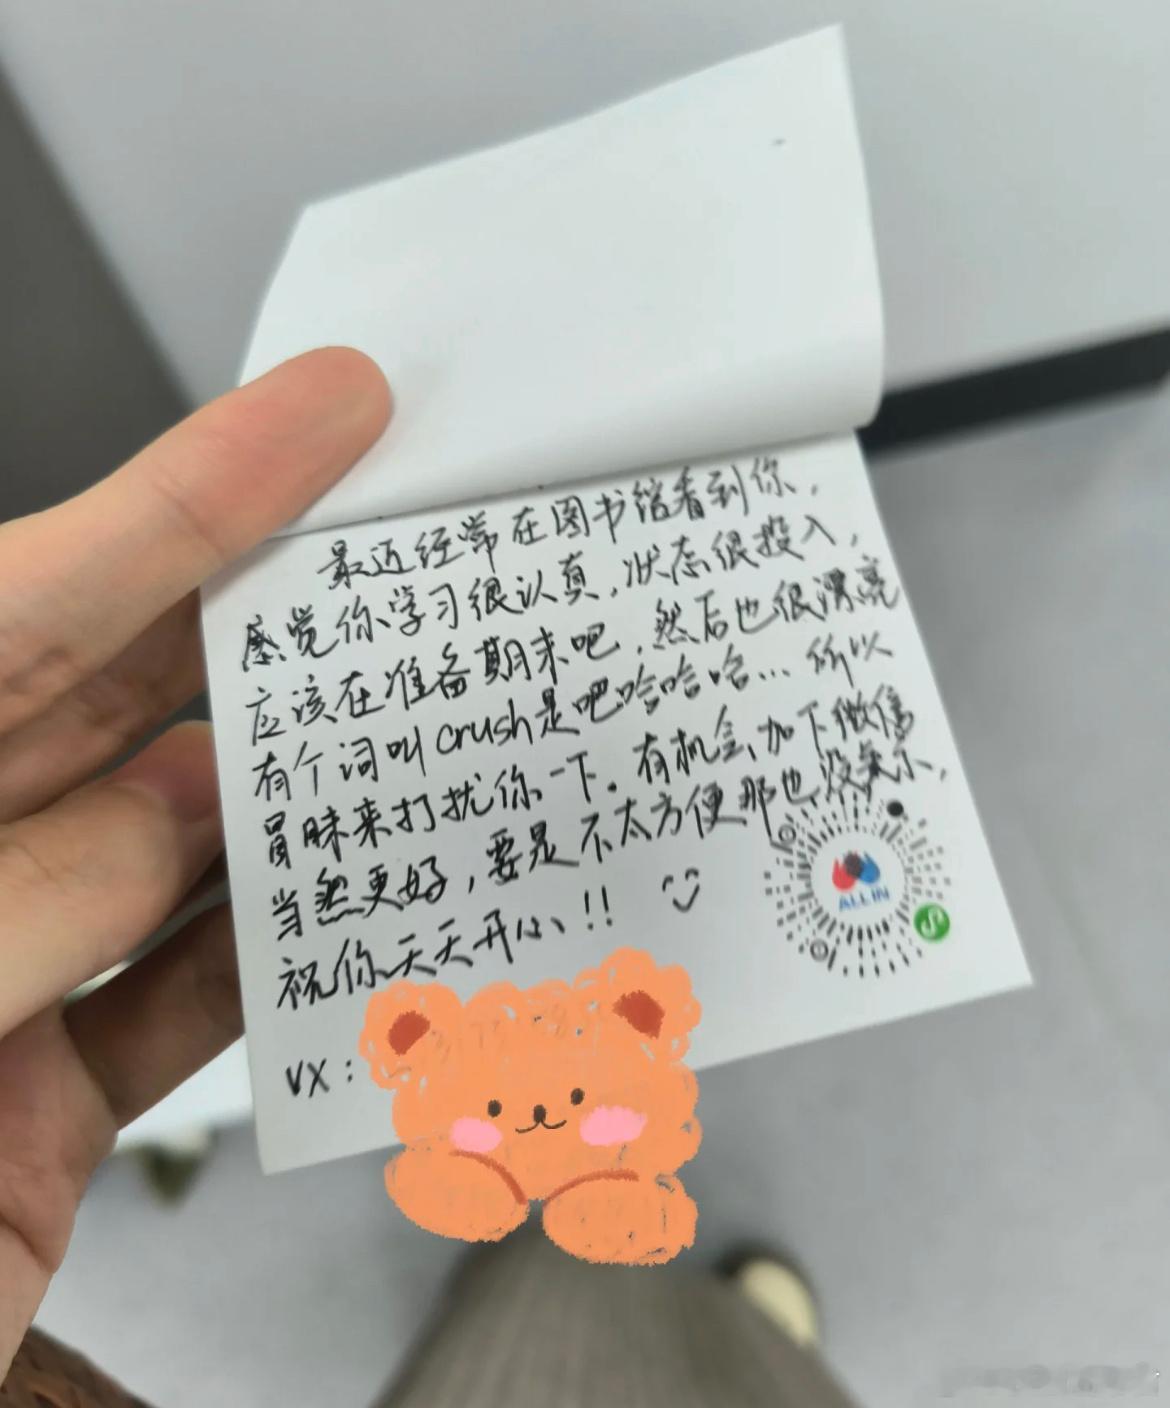 最近经常在图书馆看到你，
感觉你学习很认真，状态很投入，
应该在准备期末吧，然后也很漂亮
有个词叫crush是吧哈哈哈... 所以
冒昧来打扰你一下。有机会加下微信
当然更好，要是不太方便那也没关系，
祝你天天开心!!
VX：
ALL IN